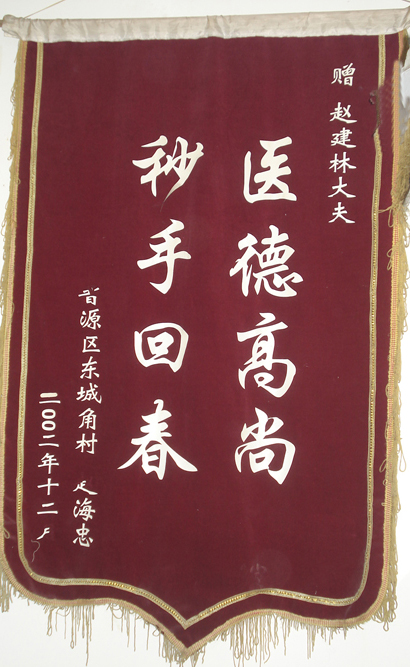 赠 赵建林大夫
医德高尚
秒手回春
晋源区东城角村 海忠
二00二年十二月